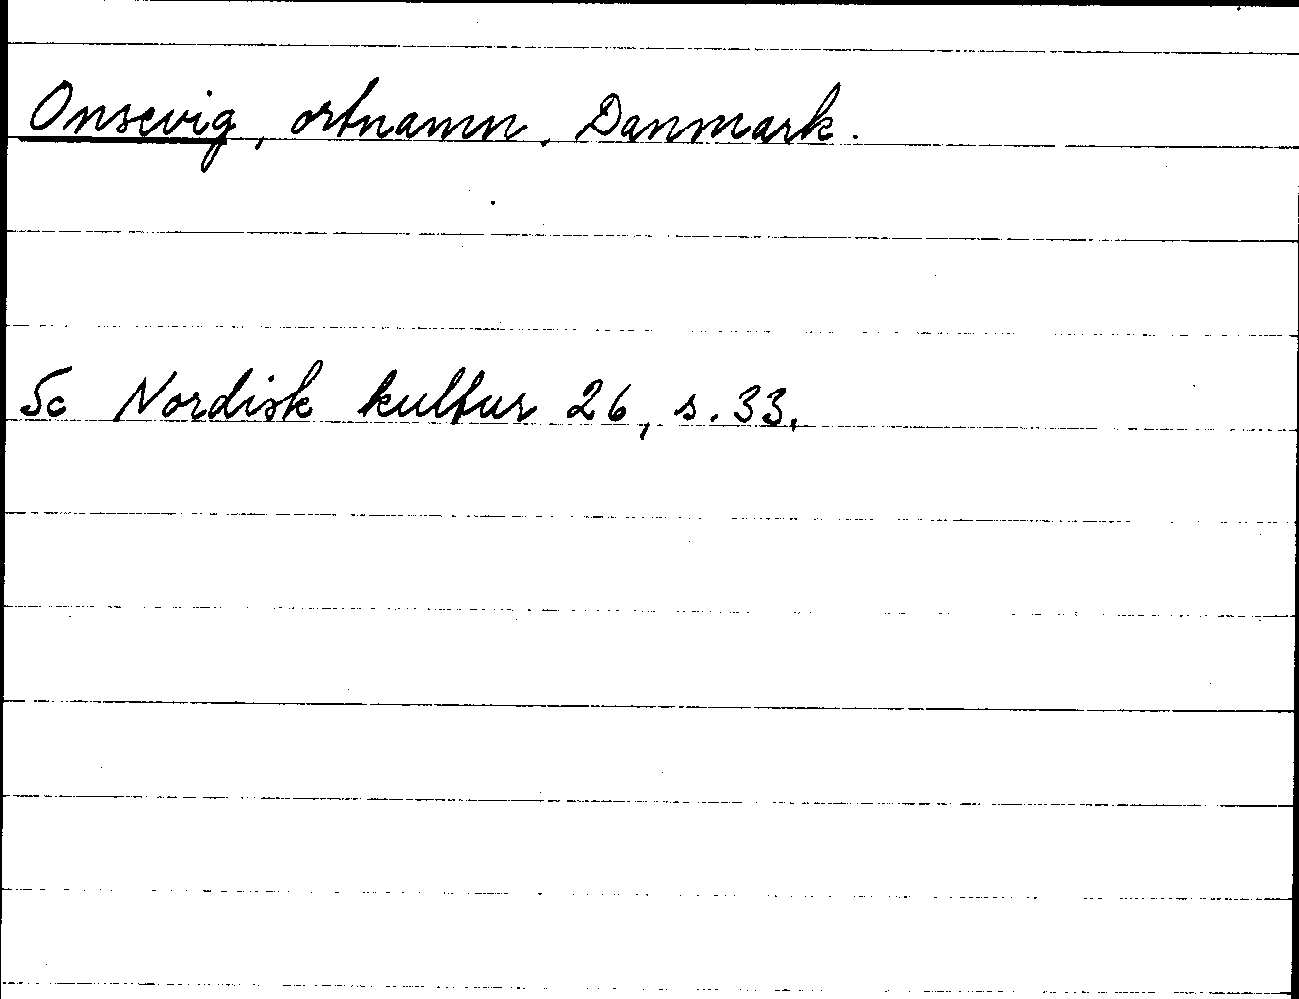 Onsevig, ortnamn, Danmark.
Sc Nordisk kultur 26, s. 33.